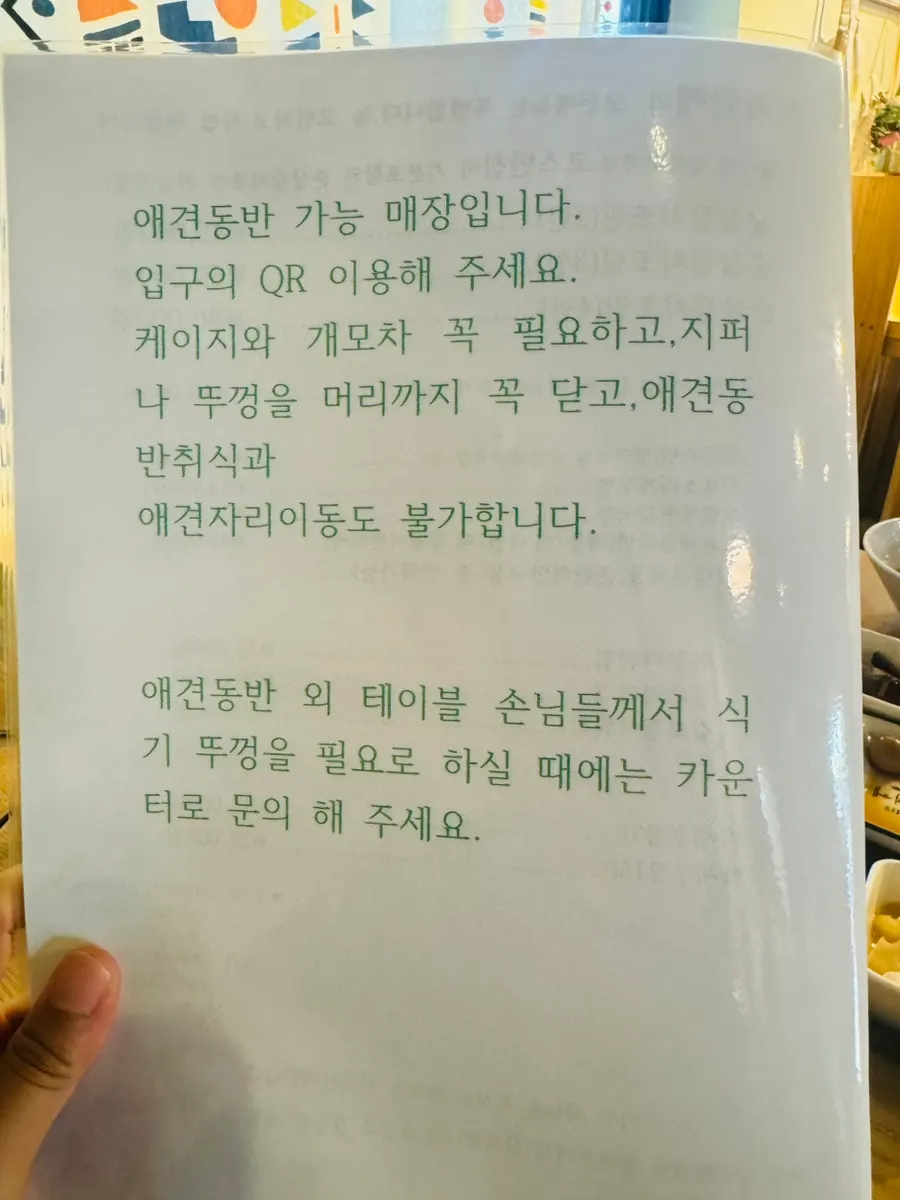 애견동반 가능 매장입니다.
입구의 QR 이용해 주세요.
케이지와 개모차 꼭 필요하고,지퍼
나 뚜껑을 머리까지 꼭 닫고,애견동
반취식과
애견자리이동도 불가합니다.
애견동반 외 테이블 손님들께서 식
기 뚜껑을 필요로 하실 때에는 카운
터로 문의 해 주세요.